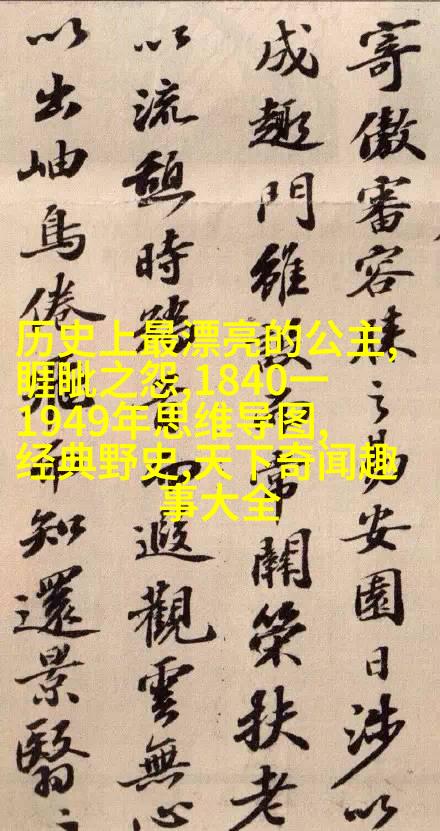 寄傲審容膝之易安園日涉以
成趣門雖設而常關策扶老
以流憩時而遐觀雲無心
以出岫鳥倦飛而知還景翳〻
历史上最漂亮的公主,
睚眦之怨,1840一
1949年思维导图,
经典野史,天下奇闻趣
事大全